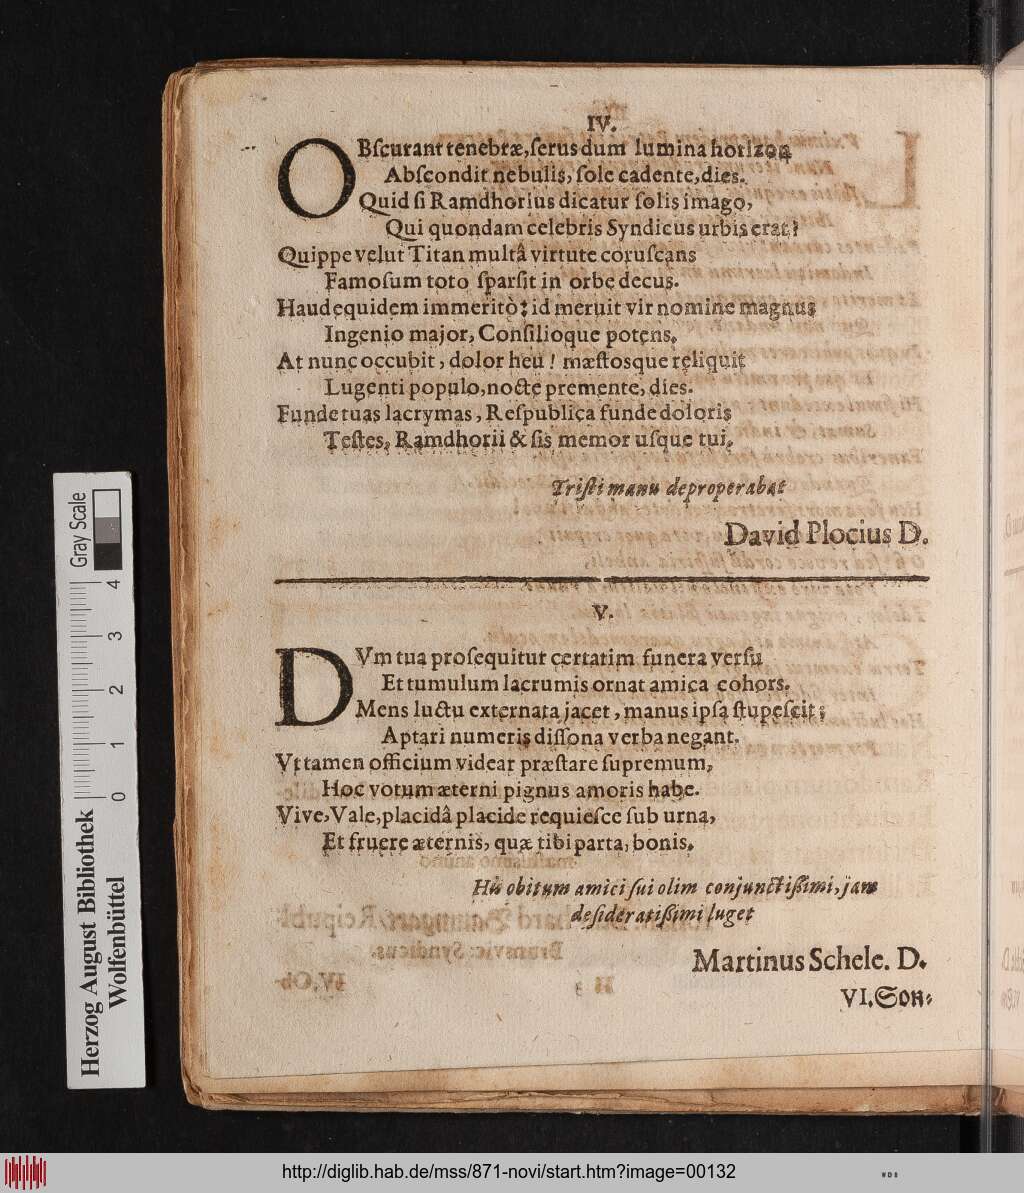 IV.
OBſcurant tenebræ, ſerus dum lumina horizon
Abſcondit nebulis, ſole cadente, dies.
Quid ſi Ramdhorius dicatur ſolis imago,
Qui quondam celebris Syndicus urbis erat?
Quippe velut Titan multâ virtute coruſcans
Famoſum toto ſparſit in orbe decus.
Haud equidem immeritò: id meruit vir nomine magnus
Ingenio major, Conſilioque potens.
At nunc occubit, dolor heu! mæſtosque reliquit
Lugenti populo, nocte premente, dies.
Funde tuas lacrymas, Reſpublica funde doloris
Teſtes, Ramdhorii & ſis memor uſque tui.
Triſti manu deproperabat
David Plocius D.
V.
DVm tua proſequitur certatim funera verſu
Et tumulum lacrumis ornat amica cohors.
Mens luctu externata jacet, manus ipſa ſtupeſcit;
Aptari numeris diſſona verba negant.
Vt tamen officium videar præſtare ſupremum,
Hoc votum æterni pignus amoris habe.
Vive, Vale, placidâ placide requieſce ſub urna,
Et fruere æternis, quæ tibi parta, bonis.
His obitum amici ſui olim conjunctißimi, jam
deſideratißimi luget
Martinus Schele. D.
VI. Son-
Gray Scale
0 1 2 3 4
Herzog August Bibliothek
Wolfenbüttel
http://diglib.hab.de/mss/871-novi/start.htm?image=00132